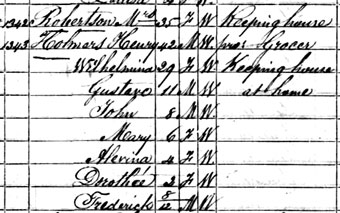 1342 Robertson Mrs 35 F W Keeping house
1343 Holmars Henry 42 M W Grocer
Wilhelmina 29 F W Keeping house
Gustave 11 M W at home
John 8 M W
Mary 6 F W
Alevina 4 F W
Dorothée 2 F W
Frederick 8/12 M W